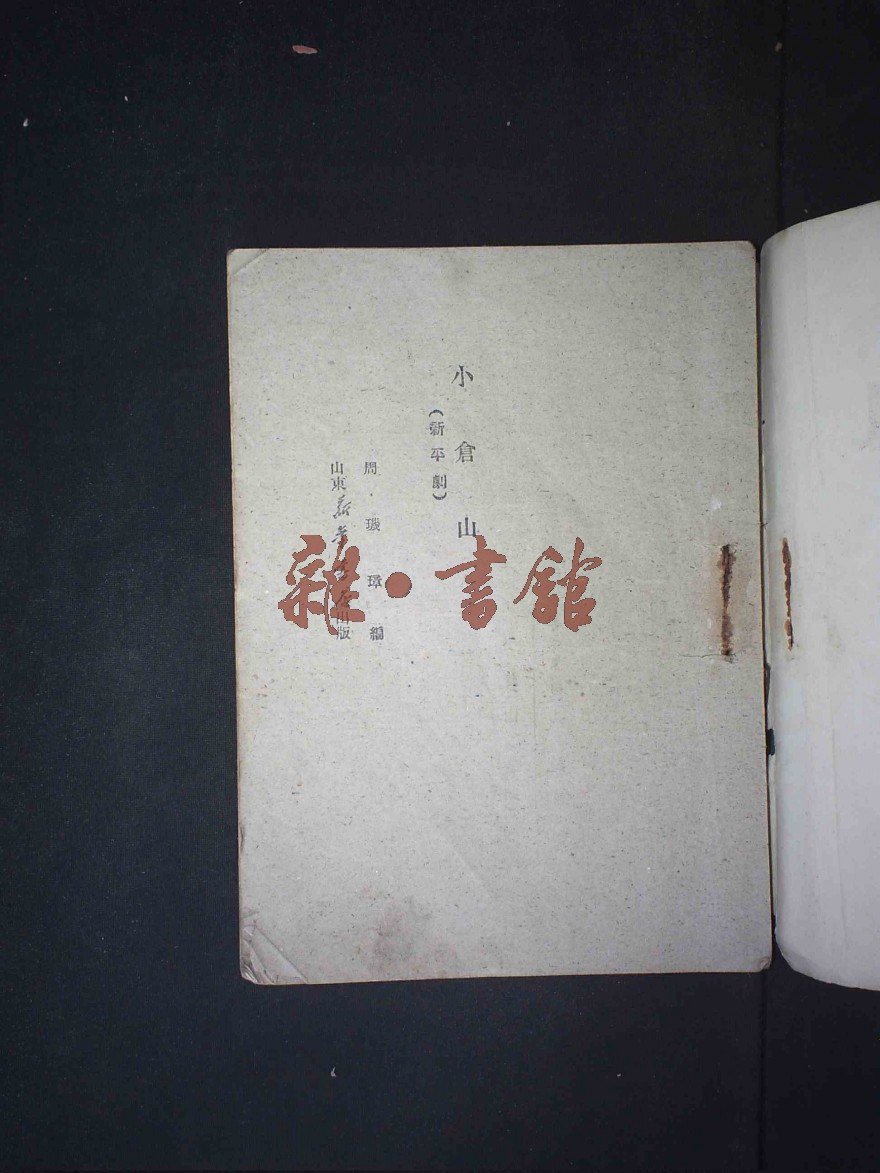 小倉山
(新平劇)
周璣璋編
山東新華書店出版
雜·書館